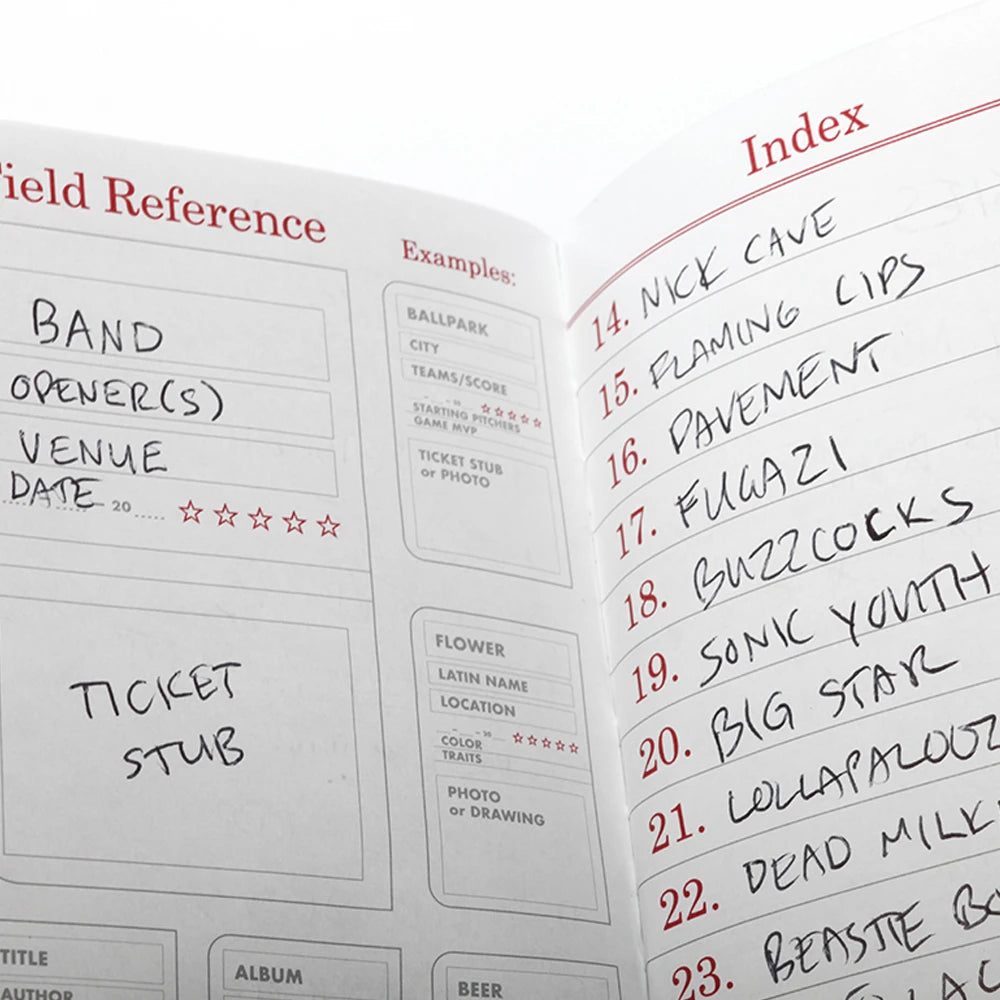 ield Reference
BAND
OPENER(S)
VENUE
DATE 20
TICKET
STUB
TITLE
AUTHOR
ALBUM
Examples:
BALLPARK
CITY
TEAMS/SCORE
20
STARTING PITCHERS
GAME MVP
TICKET STUB
or PHOTO
FLOWER
LATIN NAME
LOCATION
20
COLOR
TRAITS
PHOTO
or DRAWING
BEER
Index
14. NICK CAVE
15. FLAMING LIPS
16. PAVEMENT
17. FUGAZI
18. BUZZCOCKS
19. SONIC YOUTH
20. BIG STAR
21. LOLLAPALOOZ
22. DEAD MILK
23. BEASTIE BO